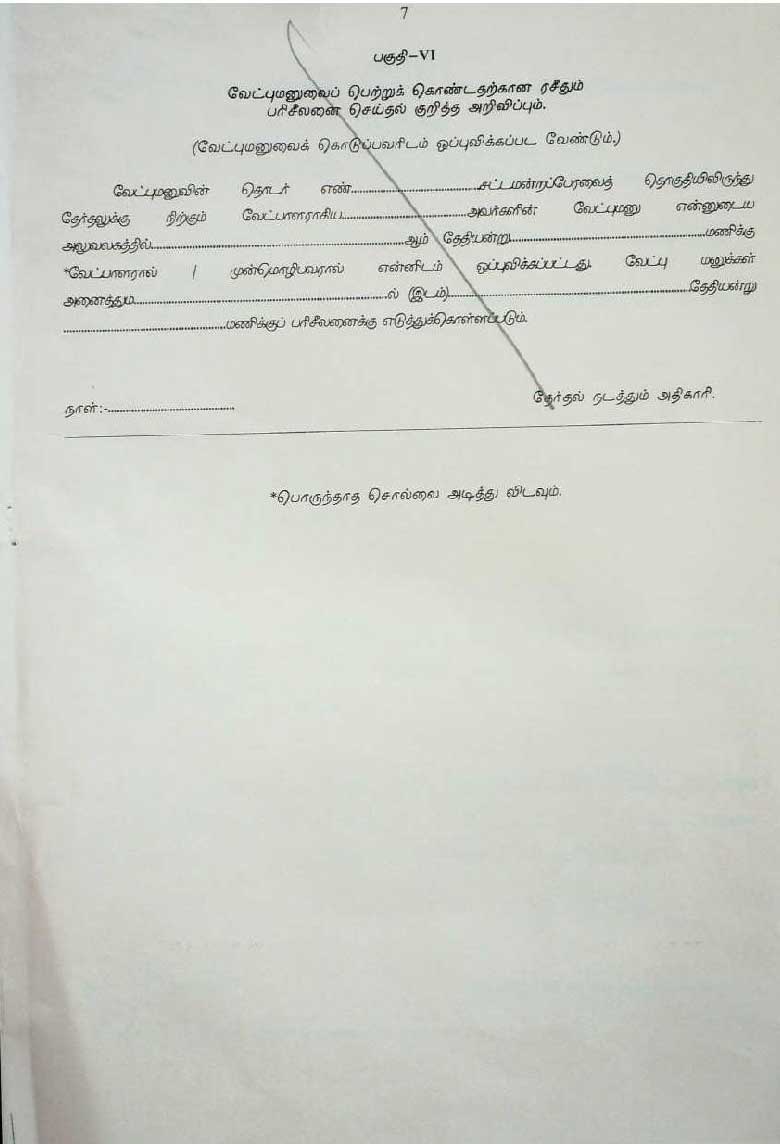 7
பகுதி-VI
வேட்புமனுவைப் பெற்றுக் கொண்டதற்கான ரசீதும்
பரிசீலனை செய்தல் குறித்த அறிவிப்பும்.
(வேட்புமனுவைக் கொடுப்பவரிடம் ஒப்புவிக்கப்பட வேண்டும்.)
வேட்புமனுவின் தொடர் எண்..............................சட்டமன்றப்பேரவைத் தொகுதியிலிருந்து
தேர்தலுக்கு நிற்கும் வேட்பாளராகிய..............................அவர்களின் வேட்புமனு என்னுடைய
அலுவலகத்தில்............................................................ஆம் தேதியன்று..............................................மணிக்கு
*வேட்பாளரால் / முன்மொழிபவரால் என்னிடம் ஒப்புவிக்கப்பட்டது. வேட்பு மனுக்கள்
அனைத்தும்............................................................ல் (இடம்)............................................................தேதியன்று
......................................மணிக்குப் பரிசீலனைக்கு எடுத்துக்கொள்ளப்படும்.
நாள்:-..............................
தேர்தல் நடத்தும் அதிகாரி.
*பொருந்தாத சொல்லை அடித்து விடவும்.